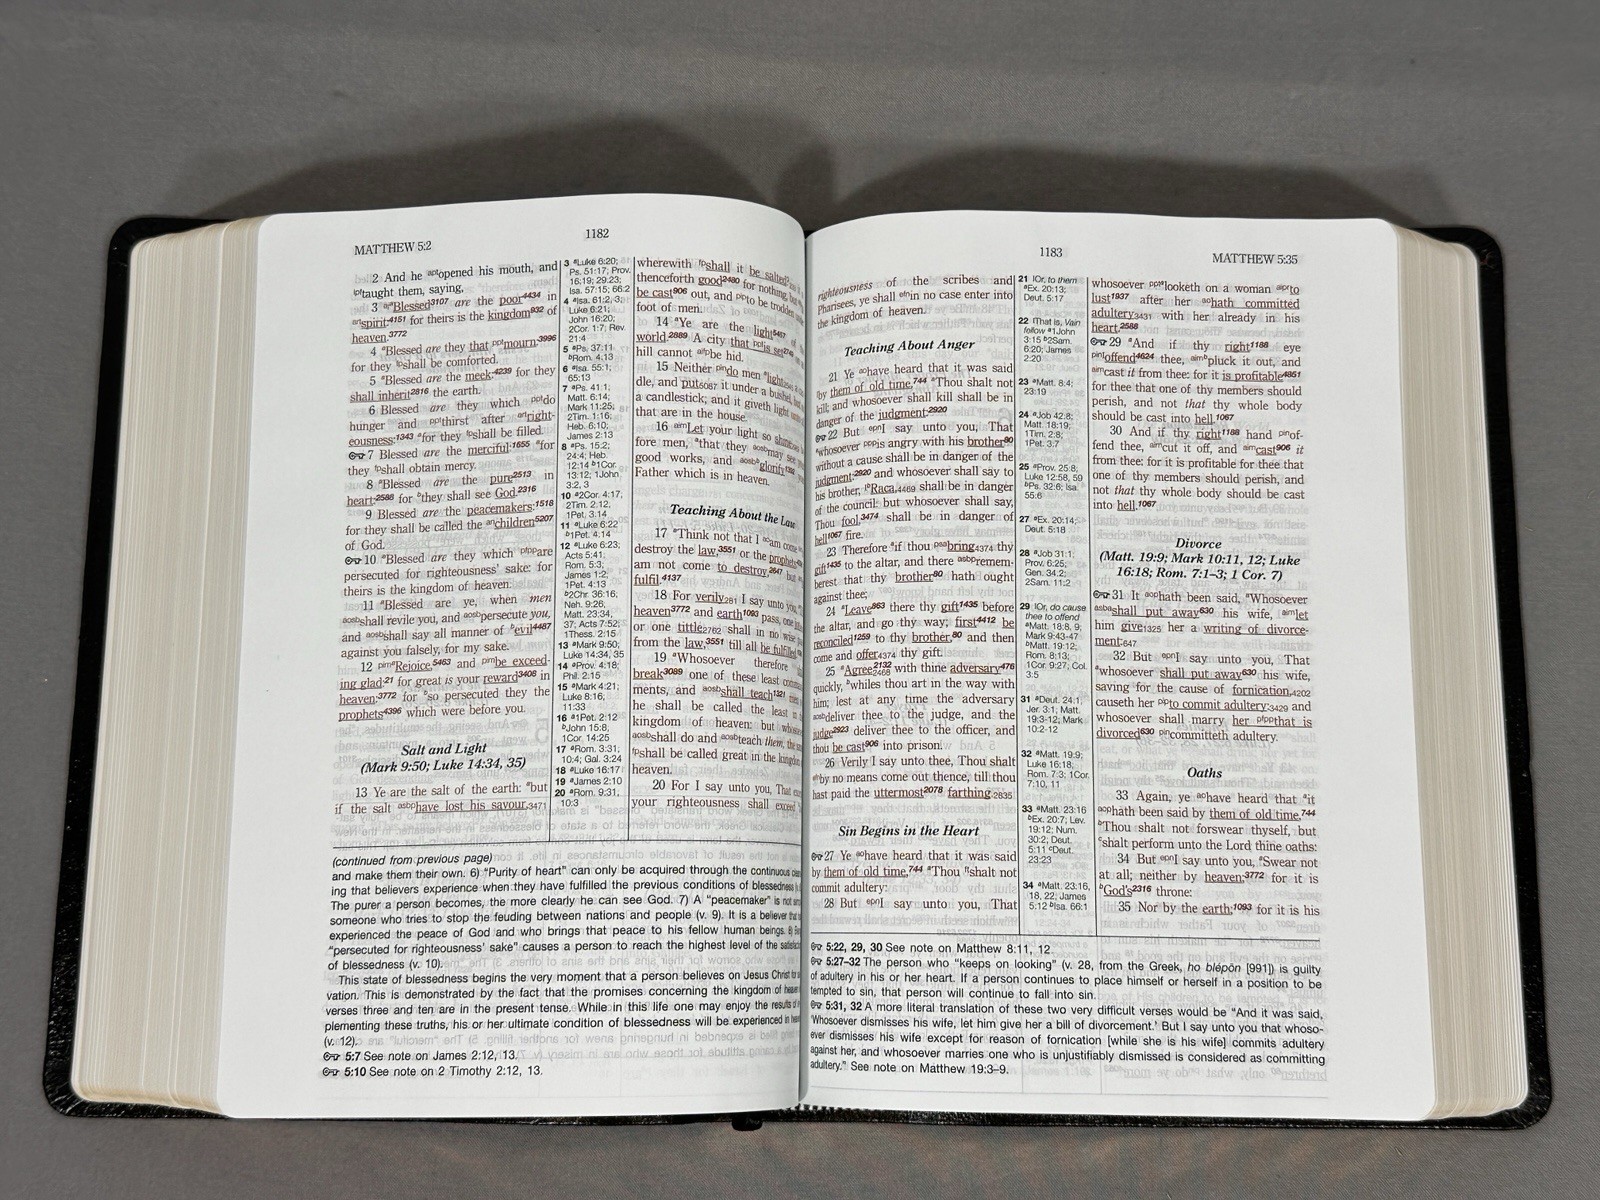 MATTHEW 5:2
1182
2 And he aptopened his mouth, and
iptaught them, saying,
3 aptaBlessed3107 are the poor4434 in
artspirit:4151 for theirs is the kingdom932 of
heaven.3772
4 aBlessed are they that pptmourn:3996
for they fpshall be comforted.
5 aBlessed are the meek:4239 for they
shall inherit2816 the earth.
6 Blessed are they which pptdo
hunger and pptthirst after artright-
eousness:1343 afor they fpshall be filled.
7 Blessed are the merciful:1655 afor
they fpshall obtain mercy.
8 aBlessed are the pure2513 in
heart:2588 for bthey shall see God.2316
9 Blessed are the peacemakers:1518
for they shall be called the anchildren5207
of God.
10 aBlessed are they which pfppare
persecuted for righteousness' sake: for
theirs is the kingdom of heaven.
11 aBlessed are ye, when men
aosbshall revile you, and aosbpersecute you,
and aosbshall say all manner of bevil4487
against you falsely, for my sake.
12 pimaRejoice,5463 and pimbe exceed-
ing glad:21 for great is your reward3408 in
heaven:3772 for bso persecuted they the
prophets4396 which were before you.
Salt and Light
(Mark 9:50; Luke 14:34, 35)
13 Ye are the salt of the earth: abut
if the salt asbphave lost his savour,3471
3 aLuke 6:20;
Ps. 51:17; Prov.
16:19; 29:23;
Isa. 57:15; 66:2
4 aIsa. 61:2, 3;
Luke 6:21;
John 16:20;
2Cor. 1:7; Rev.
21:4
5 aPs. 37:11
bRom. 4:13
6 aIsa. 55:1;
65:13
7 aPs. 41:1;
Matt. 6:14;
Mark 11:25;
2Tim. 1:16;
Heb. 6:10;
James 2:13
8 aPs. 15:2;
24:4; Heb.
12:14 b1Cor.
13:12; 1John
3:2, 3
10 a2Cor. 4:17;
2Tim. 2:12,
1Pet. 3:14
11 aLuke 6:22
b1Pet. 4:14
12 aLuke 6:23;
Acts 5:41;
Rom. 5:3,
James 1:2;
1Pet. 4:13
b2Chr. 36:16,
Neh. 9:26,
Matt. 23:34,
37; Acts 7:52;
1Thess. 2:15
13 aMark 9:50;
Luke 14:34, 35
14 aProv. 4:18;
Phil. 2:15
15 aMark 4:21;
Luke 8:16;
11:33
16 a1Pet. 2:12
bJohn 15:8;
1Cor. 14:25
17 aRom. 3:31;
10:4; Gal. 3:24
18 aLuke 16:17
19 aJames 2:10
20 aRom. 9:31,
10:3
wherewith fpshall it be salted?
thenceforth good2480 for nothing, but
be cast906 out, and pptto be trodden
foot of men.
14 aYe are the light5457 of
world.2889 A city that pptis set2749
hill cannot aifpbe hid.
15 Neither pindo men alight
dle, and put5087 it under a bushel, but
a candlestick; and it giveth light
that are in the house.
16 aimLet your light so shine
fore men, athat they aosbmay see
good works, and aosbbglorify1392
Father which is in heaven.
Teaching About the Law
17 aThink not that I aoam come
destroy the law,3551 or the prophets:
am not come to destroy,2647 but
fulfil.4137
18 For verily281 I say unto you,
heaven3772 and earth1093 pass, one
or one tittle2762 shall in no wise
from the law,3551 till all be fulfilled.
19 aWhosoever therefore
break3089 one of these least command-
ments, and aosbshall teach1321
he shall be called the least in
kingdom of heaven: but whosoever
aosbshall do and aosbteach them, the
fpshall be called great in the kingdom
heaven.
20 For I say unto you, That
your righteousness shall exceed
(continued from previous page)
and make them their own. 6) "Purity of heart" can only be acquired through the continuous
ing that believers experience when they have fulfilled the previous conditions of blessedness
The purer a person becomes, the more clearly he can see God. 7) A "peacemaker" is not
someone who tries to stop the feuding between nations and people (v. 9). It is a believer that
experienced the peace of God and who brings that peace to his fellow human beings. 8)
"persecuted for righteousness' sake" causes a person to reach the highest level of the
of blessedness (v. 10).
This state of blessedness begins the very moment that a person believes on Jesus Christ for
vation. This is demonstrated by the fact that the promises concerning the kingdom of heaven
verses three and ten are in the present tense. While in this life one may enjoy the results of
plementing these truths, his or her ultimate condition of blessedness will be experienced in
(v. 12).
5:7 See note on James 2:12, 13.
5:10 See note on 2 Timothy 2:12, 13.
1183
MATTHEW 5:35
righteousness of the scribes and
Pharisees, ye shall efnin no case enter into
the kingdom of heaven.
Teaching About Anger
21 Ye aohave heard that it was said
by them of old time,744 aThou shalt not
kill; and whosoever shall kill shall be in
danger of the judgment:2920
22 But epnI say unto you, That
awhosoever pppis angry with his brother80
without a cause shall be in danger of the
judgment:2920 and whosoever shall say to
his brother, lbRaca,4469 shall be in danger
of the council: but whosoever shall say,
Thou fool,3474 shall be in danger of
hell1067 fire.
23 Therefore aif thou psabring4374 thy
gift1435 to the altar, and there asbpremem-
berest that thy brother80 hath ought
against thee;
24 aLeave863 there thy gift1435 before
the altar, and go thy way; first4412 be
reconciled1259 to thy brother,80 and then
come and offer4374 thy gift.
25 aAgree2132 2468 with thine adversary476
quickly, bwhiles thou art in the way with
him; lest at any time the adversary
aosbdeliver thee to the judge, and the
judge2923 deliver thee to the officer, and
thou be cast906 into prison.
26 Verily I say unto thee, Thou shalt
efnby no means come out thence, till thou
hast paid the uttermost2078 farthing.2835
Sin Begins in the Heart
27 Ye aohave heard that it was said
by them of old time,744 aThou ftshalt not
commit adultery:
28 But epnI say unto you, That
21 lOr, to them
aEx. 20:13;
Deut. 5:17
22 lThat is, Vain
fellow a1John
3:15 b2Sam.
6:20; James
2:20
23 aMatt. 8:4;
23:19
24 aJob 42:8;
Matt. 18:19;
1Tim. 2:8;
1Pet. 3:7
25 aProv. 25:8;
Luke 12:58, 59
bPs. 32:6; Isa.
55:6
27 aEx. 20:14;
Deut. 5:18
28 aJob 31:1;
Prov. 6:25;
Gen. 34:2;
2Sam. 11:2
29 lOr, do cause
thee to offend
aMatt. 18:8, 9;
Mark 9:43-47
bMatt. 19:12;
Rom. 8:13;
1Cor. 9:27; Col.
3:5
31 aDeut. 24:1;
Jer. 3:1; Matt.
19:3-12; Mark
10:2-12
32 aMatt. 19:9;
Luke 16:18;
Rom. 7:3; 1Cor.
7:10, 11
33 aMatt. 23:16
bEx. 20:7; Lev.
19:12; Num.
30:2; Deut.
5:11 cDeut.
23:23
34 aMatt. 23:16,
18, 22; James
5:12 bIsa. 66:1
whosoever pptalooketh on a woman aprto
lust1937 after her aohath committed
adultery3431 with her already in his
heart.2588
29 aAnd if thy right1188 eye
pintoffend4624 thee, aimbpluck it out, and
aimcast it from thee: for it is profitable4851
for thee that one of thy members should
perish, and not that thy whole body
should be cast into hell.1067
30 And if thy right1188 hand pinof-
fend thee, aimcut it off, and aimcast906 it
from thee: for it is profitable for thee that
one of thy members should perish, and
not that thy whole body should be cast
into hell.1067
Divorce
(Matt. 19:9; Mark 10:11, 12; Luke
16:18; Rom. 7:1–3; 1 Cor. 7)
31 It aophath been said, aWhosoever
asbashall put away630 his wife, aimlet
him give1325 her a writing of divorce-
ment:647
32 But epnI say unto you, That
awhosoever shall put away630 his wife,
saving for the cause of fornication,4202
causeth her pipto commit adultery:3429 and
whosoever shall marry her pfppthat is
divorced630 pincommitteth adultery.
Oaths
33 Again, ye aohave heard that ait
aophath been said by them of old time,744
bThou shalt not forswear thyself, but
cshalt perform unto the Lord thine oaths:
34 But epnI say unto you, aSwear not
at all; neither by heaven;3772 for it is
bGod's2316 throne:
35 Nor by the earth;1093 for it is his
5:22, 29, 30 See note on Matthew 8:11, 12.
5:27–32 The person who "keeps on looking" (v. 28, from the Greek, ho blépōn [991]) is guilty
of adultery in his or her heart. If a person continues to place himself or herself in a position to be
tempted to sin, that person will continue to fall into sin.
5:31, 32 A more literal translation of these two very difficult verses would be "And it was said,
'Whosoever dismisses his wife, let him give her a bill of divorcement.' But I say unto you that whoso-
ever dismisses his wife except for reason of fornication [while she is his wife] commits adultery
against her, and whosoever marries one who is unjustifiably dismissed is considered as committing
adultery." See note on Matthew 19:3–9.